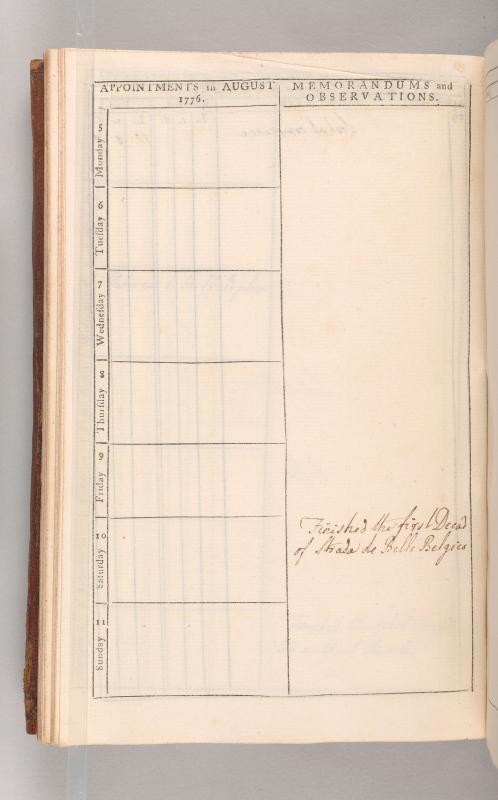 APPOINTMENTS in AUGUST
1776.
MEMORANDUMS and
OBSERVATIONS.
5
Monday
6
Tueſday
7
Wedneſday
8
Thurſday
9
Friday
10
Saturday
11
Sunday
Finished the first Decad
of Strada de Bello Belgico